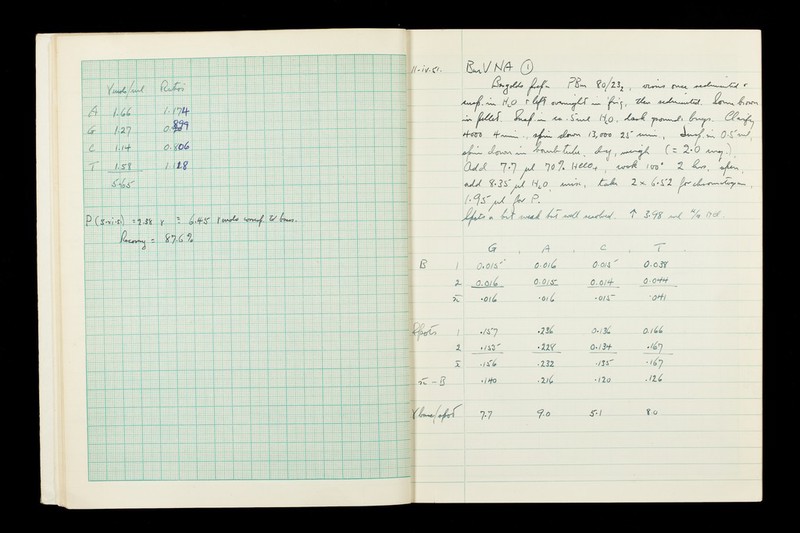 γ mols/ml Ratios
A 1.66 1.174
G 1.27 0.899
C 1.14 0.806
T 1.58 1.118
5.65
P (5-vi-51) = 2.58 γ
Recovery = 87.6 %
11-iv-51. Bm V NA ①
PBm 80/23₂, virus once sedimented &
susp. in H₂O & left overnight in frig, then sedimented. Some brown
in pellet. Susp. in ca. 5 ml H₂O, Clarify
4000 4 min, spin down 13,000 25 min, susp. in 0.5 ml,
spin down in tube, dry, weigh (= 2.0 mg.).
Add 7.7 µl 70% HClO₄, cook 100° 2 hrs, spin,
add 8.35 µl H₂O, mix, take 2 x 6.52 for chromatogram,
1.95 µl for P.
Spots a bit weak but well resolved. ↑ 3.98 ml N/10 HCl.
G A C T
B 1 0.015 0.016 0.015 0.038
2 0.016 0.015 0.014 0.044
x̄ .016 .016 .015 .041
Spots 1 .157 .236 0.136 0.166
2 .155 .228 0.134 .167
x̄ .156 .232 .135 .167
x̄ - B .140 .216 .120 .126
γ base/spot 7.7 9.0 5.1 8.0